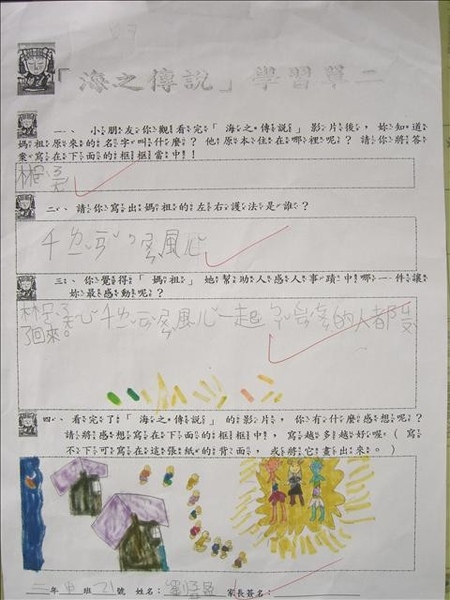 「海之傳說」學習單二
一、小朋友你觀看完「海之傳說」影片後，妳知道
媽祖原來的名字叫什麼？他原本住在哪裡呢？請你將答
案寫在下面的框框當中！
林
二、請你寫出媽祖的左右護法是誰？
千 風
三、你覺得「媽祖」她幫助人感人事蹟中哪一件讓
妳最感動呢？
林 千 風 一起 的人都
了回來。
四、看完了「海之傳說」的影片，你有什麼感想呢？
請將感想寫在下面的框框中，寫越多越好喔。（寫
不下可寫在這張紙的背面，或將它畫出來。）
二年 班 21 號 姓名：劉 家長簽名：